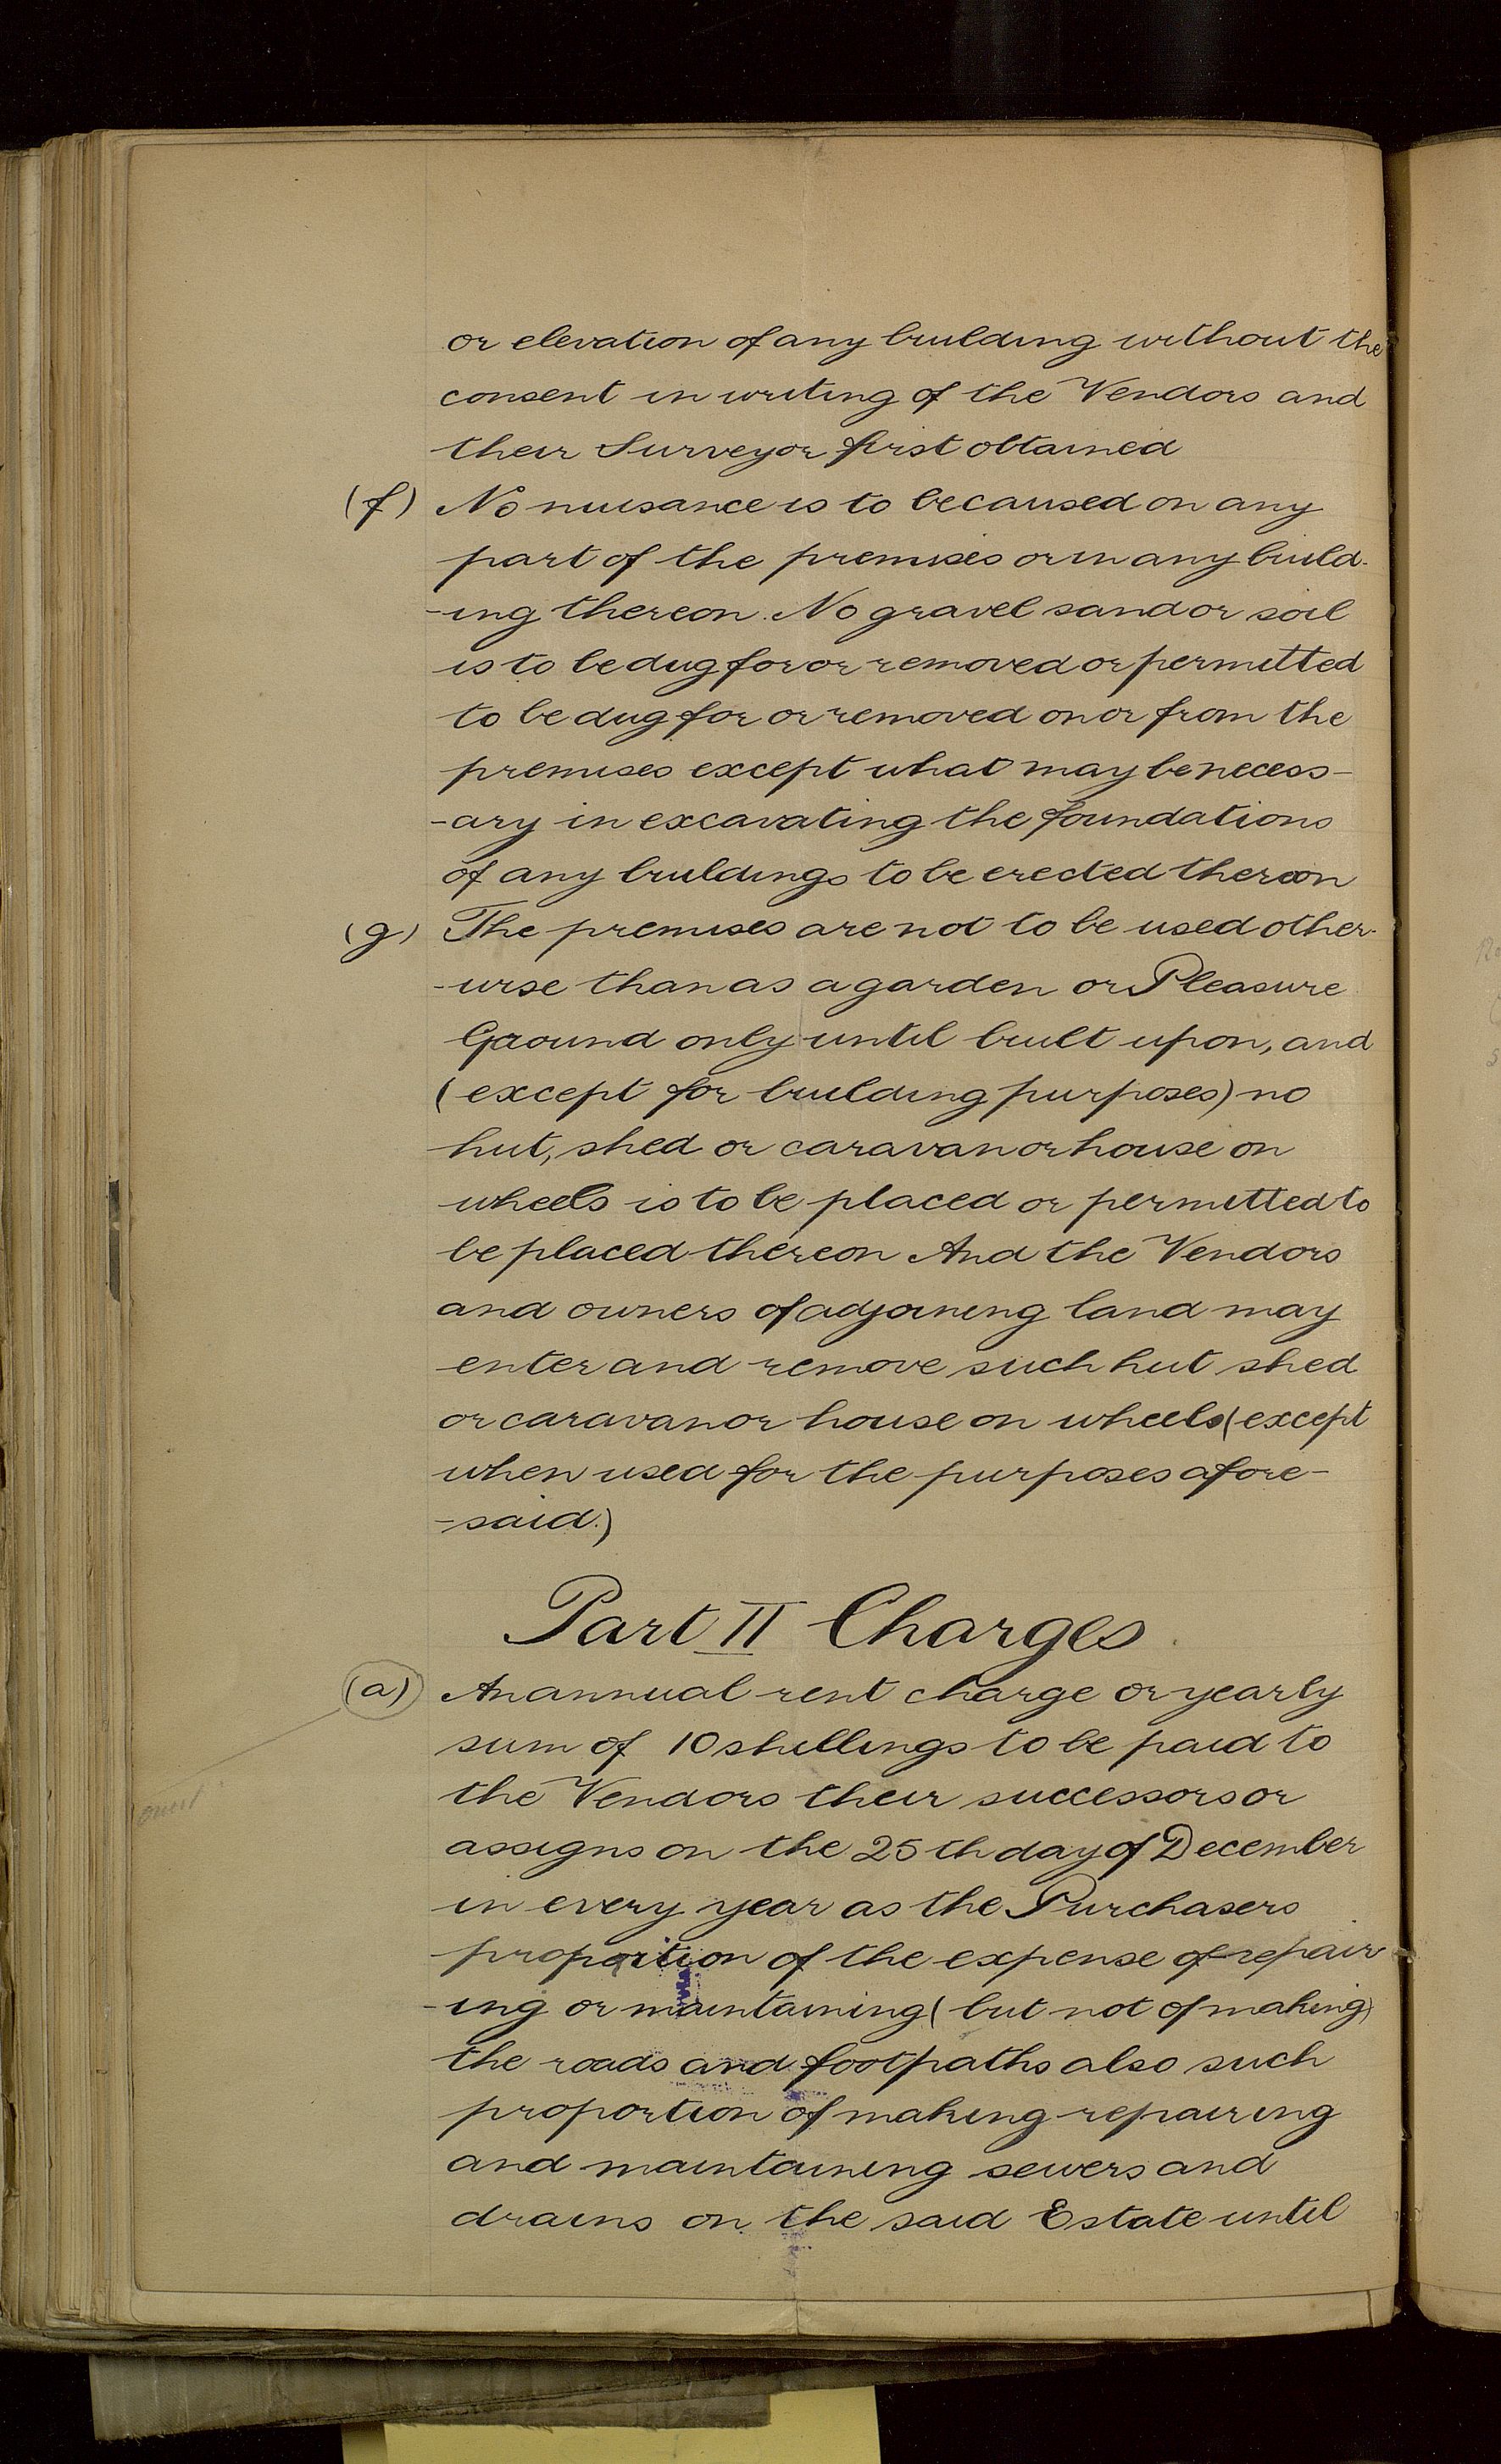 or elevation of any building without the
consent in writing of the Vendors and
their Surveyor first obtained
(f) No nuisance is to be caused on any
part of the premises or in any build-
-ing thereon. No gravel sand or soil
is to be dug for or removed or permitted
to be dug for or removed on or from the
premises except what may be necess-
-ary in excavating the foundations
of any buildings to be erected thereon
(g) The premises are not to be used other-
-wise than as a garden or Pleasure
Ground only until built upon, and
(except for building purposes) no
hut, shed or caravan or house on
wheels is to be placed or permitted to
be placed thereon And the Vendors
and owners of adjoining land may
enter and remove such hut shed
or caravan or house on wheels (except
when used for the purposes afore-
-said.)
Part II Charges
(a) An annual rent charge or yearly
sum of 10 shillings to be paid to
the Vendors their successors or
assigns on the 25th day of December
in every year as the Purchasers
proportion of the expense of repair-
-ing or maintaining (but not of making)
the roads and footpaths also such
proportion of making repairing
and maintaining sewers and
drains on the said Estate until